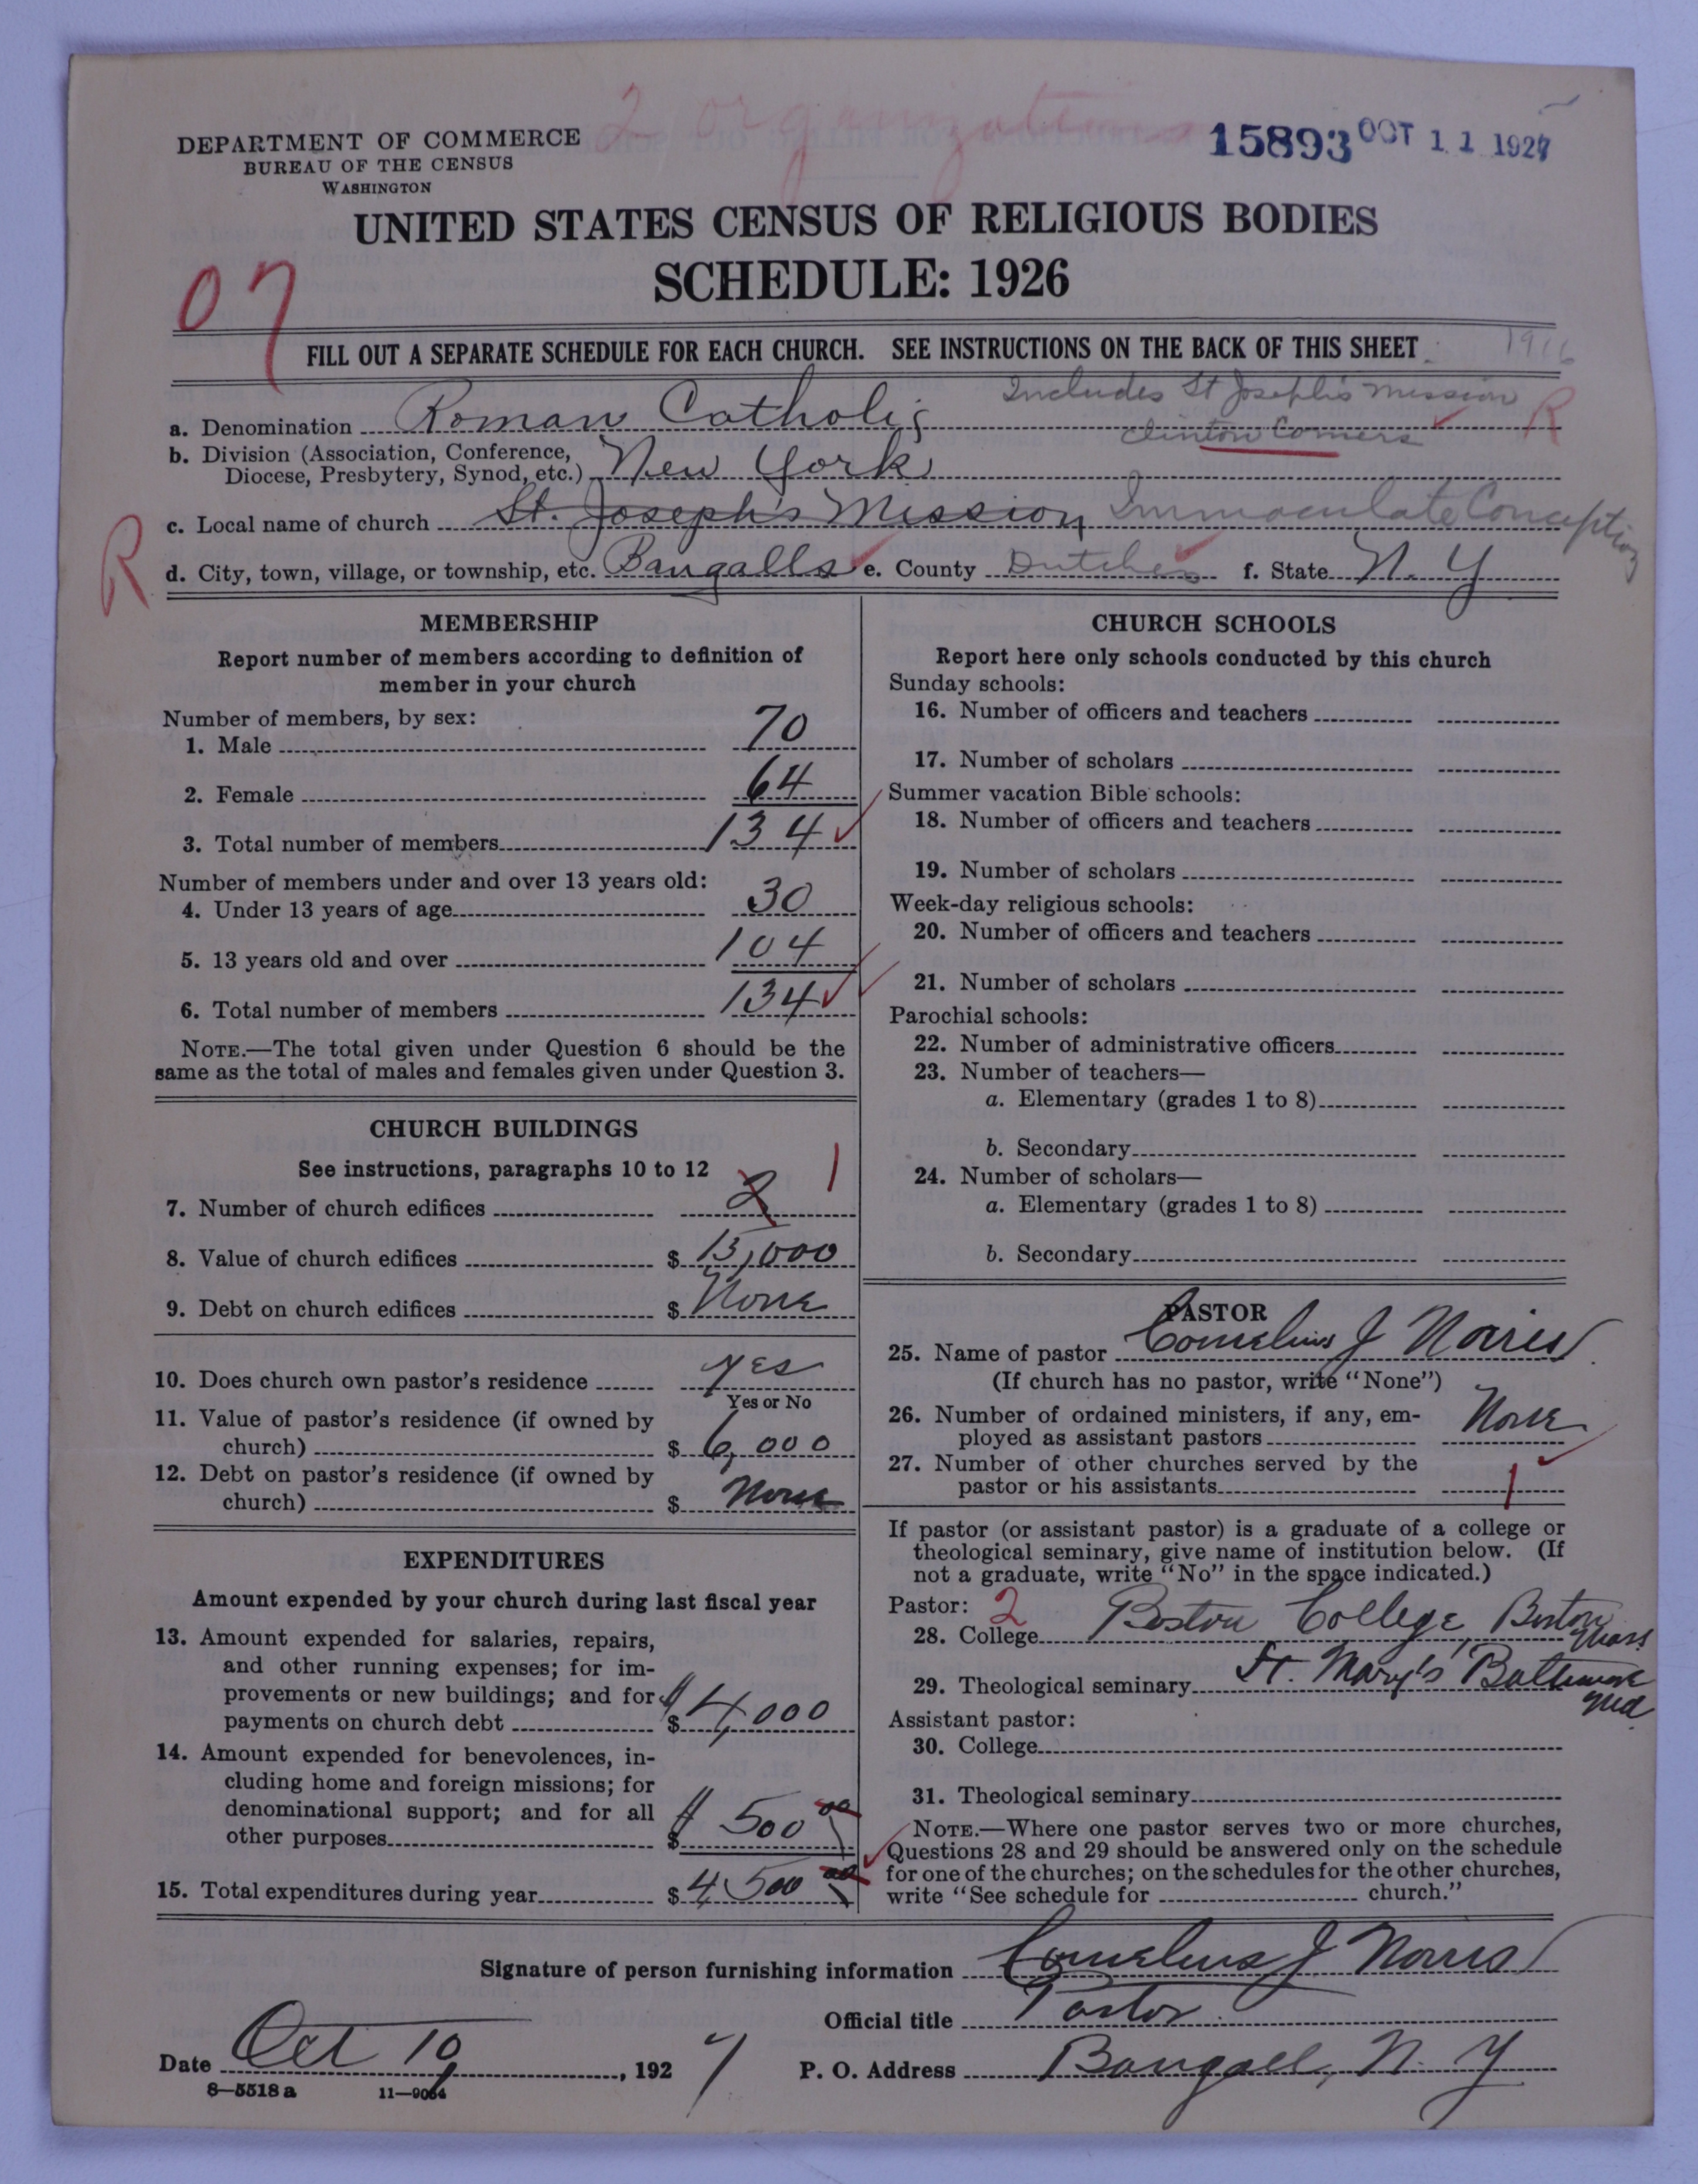 2 organizations
15893 OCT 11 1927
DEPARTMENT OF COMMERCE
BUREAU OF THE CENSUS
WASHINGTON
UNITED STATES CENSUS OF RELIGIOUS BODIES
SCHEDULE: 1926
07
FILL OUT A SEPARATE SCHEDULE FOR EACH CHURCH. SEE INSTRUCTIONS ON THE BACK OF THIS SHEET
1916
Includes St Joseph's mission
a. Denomination Roman Catholic R
Clinton Corners
b. Division (Association, Conference,
Diocese, Presbytery, Synod, etc.) New York
c. Local name of church St. Joseph's Mission Immaculate Conception
R
d. City, town, village, or township, etc. Bangalls e. County Dutchess f. State N. Y
MEMBERSHIP
Report number of members according to definition of
member in your church
Number of members, by sex:
1. Male 70
2. Female 64
3. Total number of members 134
Number of members under and over 13 years old:
4. Under 13 years of age 30
5. 13 years old and over 104
6. Total number of members 134
NOTE.—The total given under Question 6 should be the
same as the total of males and females given under Question 3.
CHURCH BUILDINGS
See instructions, paragraphs 10 to 12
7. Number of church edifices 2 1
8. Value of church edifices $ 15,000
9. Debt on church edifices $ None
10. Does church own pastor's residence yes
Yes or No
11. Value of pastor's residence (if owned by
church) $ 6,000
12. Debt on pastor's residence (if owned by
church) $ None
EXPENDITURES
Amount expended by your church during last fiscal year
13. Amount expended for salaries, repairs,
and other running expenses; for im-
provements or new buildings; and for
payments on church debt $ $4,000
14. Amount expended for benevolences, in-
cluding home and foreign missions; for
denominational support; and for all
other purposes $ $ 500 00
15. Total expenditures during year $ 4500 00
CHURCH SCHOOLS
Report here only schools conducted by this church
Sunday schools:
16. Number of officers and teachers
17. Number of scholars
Summer vacation Bible schools:
18. Number of officers and teachers
19. Number of scholars
Week-day religious schools:
20. Number of officers and teachers
21. Number of scholars
Parochial schools:
22. Number of administrative officers
23. Number of teachers—
a. Elementary (grades 1 to 8)
b. Secondary
24. Number of scholars—
a. Elementary (grades 1 to 8)
b. Secondary
PASTOR
25. Name of pastor Cornelius J Norris
(If church has no pastor, write "None")
26. Number of ordained ministers, if any, em-
ployed as assistant pastors None
27. Number of other churches served by the
pastor or his assistants 1
If pastor (or assistant pastor) is a graduate of a college or
theological seminary, give name of institution below. (If
not a graduate, write "No" in the space indicated.)
Pastor: 2
28. College Boston College, Boston Mass
29. Theological seminary St. Mary's Baltimore Md.
Assistant pastor:
30. College
31. Theological seminary
NOTE.—Where one pastor serves two or more churches,
Questions 28 and 29 should be answered only on the schedule
for one of the churches; on the schedules for the other churches,
write "See schedule for church."
Signature of person furnishing information Cornelius J Norris
Official title Pastor
Date Oct 10, 1927 P. O. Address Bangall, N. Y
8—5518 a 11—9064